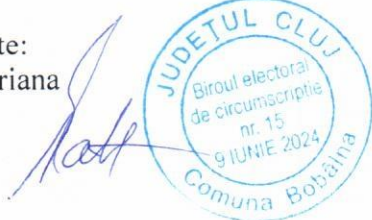 te:
riana
JUDEŢUL CLUJ
Biroul electoral
de circumscripţie
nr. 15
9 IUNIE 2024
Comuna Bobâlna